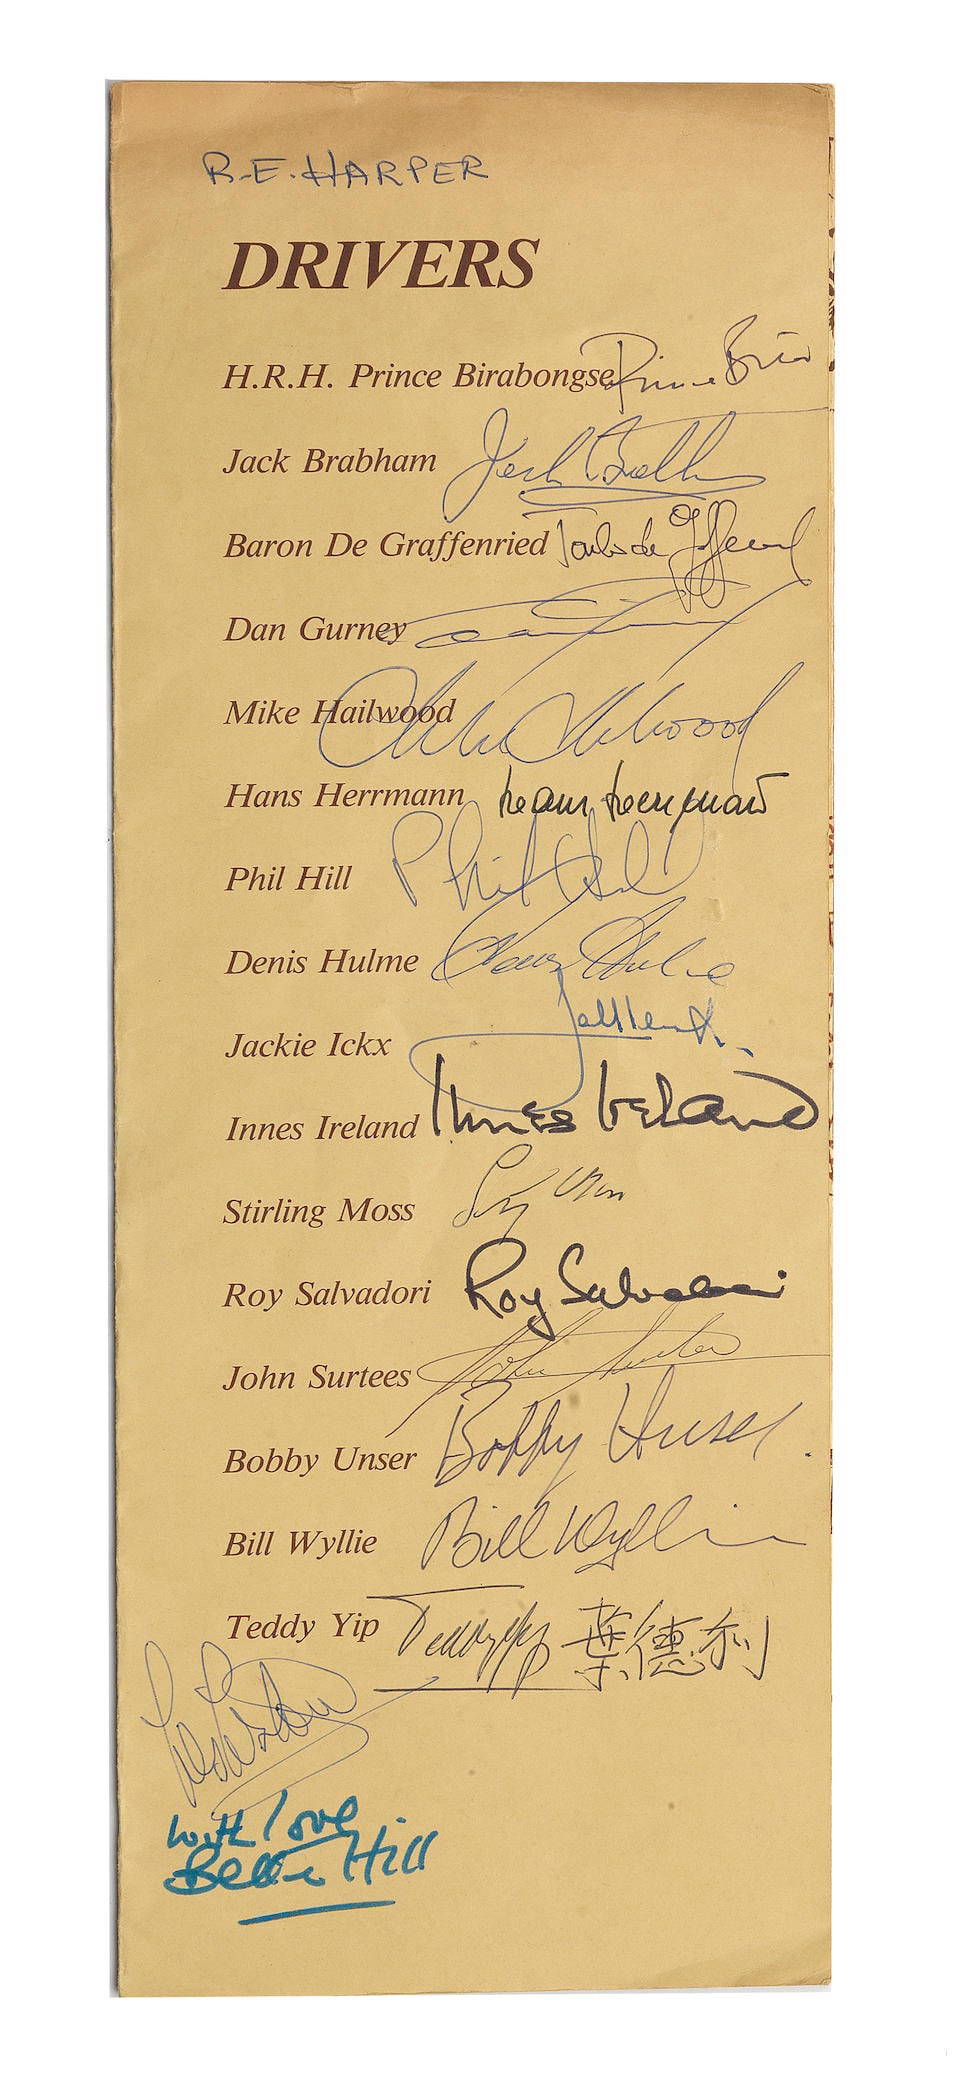 R.E. HARPER
DRIVERS
H.R.H. Prince Birabongse Prince Bira
Jack Brabham Jack Brabham
Baron De Graffenried Toulo de Graffenried
Dan Gurney Dan Gurney
Mike Hailwood Mike Hailwood
Hans Herrmann Hans Herrmann
Phil Hill Phil Hill
Denis Hulme Denny Hulme
Jackie Ickx
Innes Ireland Innes Ireland
Stirling Moss
Roy Salvadori Roy Salvadori
John Surtees John Surtees
Bobby Unser Bobby Unser
Bill Wyllie Bill Wyllie
Teddy Yip Teddy Yip 葉德利
with love
Bette Hill